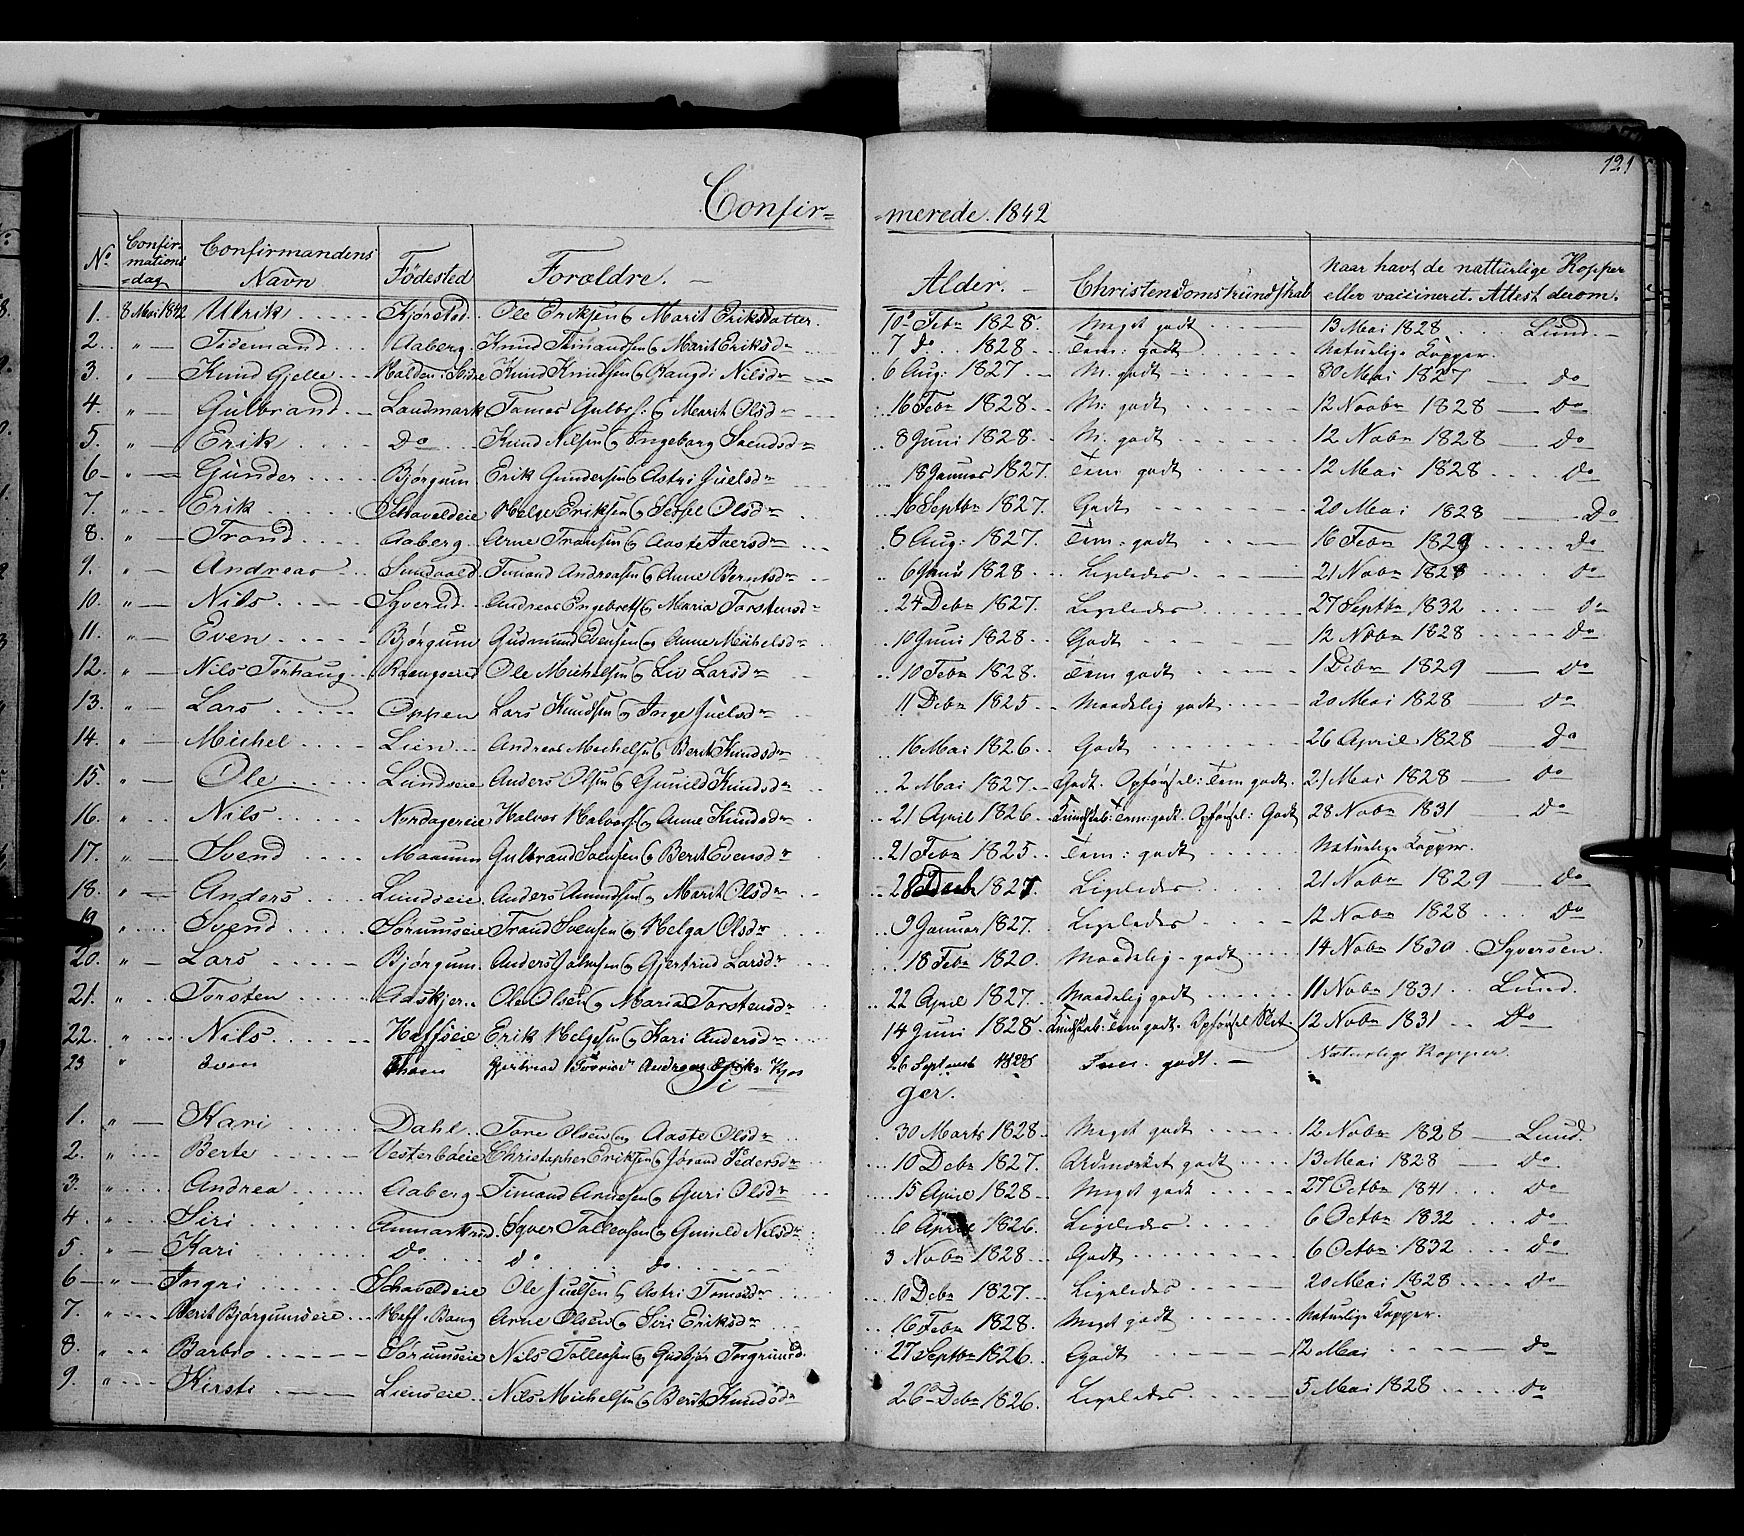 121
Confir= =merede. 1842
No Confir-mations=dag Confirmandens Navn Fødested Forældre. Alder. Christendomskundskab Naar havt de nattürlige Kopper eller vaccineret. Attest derom.
1. 8 Mai 1842 Ulrik Kjørstad Ole Eriksen og Marit Eriksdatter. 10de Febr 1828. Meget godt 13 Mai 1828 Lund.
2. " Tidemand Aaberg. Knud Timandsen og Marit Eriksdr 7 Do 1828 Tem: godt Naturlige Kopper.
3. " Knud Gjelle Knud Knudsen og Rangdi Nilsdr 6 Aug: 1827 M. godt 30 Mai 1827 Do
4. " Gulbrand Landmark Gulbrs. og Marit Olsd 16 Febr 1828. M: godt 12 Novbr 1828 Do
5. " Erik Do Knud Nilsen og Ingeborg Svendsdr 8 Juni 1828. M. godt 12 Nobr 1828 Do
6 " Gunder Bjørgum Erik Gundersen og Astri Juelsdr 18 Januar 1827. Tem godt 12 Mai 1828 Do
7. " Erik Schaveldeie Helge Eriksen og Sessel Olsdr 16 Septbr 1827. Godt 20 Mai 1828 Do
8. " Trond Aaberg. Arne Transen og Aaste Iversdr 8 Aug: 1827. Tem: godt 16 Febr 1828 Do
9. " Andreas Sundvold Timand Andreasen og Anne Berntsdr 6 Juni 1828. Ligeledes 21 Nobr 1828 Do
10. " Nils Syverud Andreas Engebrets. og Maria Torstensdr 24 Debr 1827. Ligeledes 27 Septbr 1832 Do
11. " Even Bjørgum Gudmund Evensen og Anne Michelsdr 10 Juni 1828. Godt 12 Nobr 1828 Do
12. " Nils Tørhaug Ole Michelsen og Liv Larsdr 10 Febr 1828. Tem godt 1 Debr 1829 Do
13. " Lars Oppen Lars Knudsen og Inge Juelsdr 11 Debr 1825 Maadelig godt 20 Mai 1828 Do
14. " Michel Lien Andreas Michelsen og Berit Knudsdr 16 Mai 1826 Godt 26 April 1828 Do
15 " Ole Lundseie Anders Olsen og Gunild Knudsdr 2 Mai 1827 Godt. Opførsel: Tem godt. 21 Mai 1828 Do
16. " Nils Nordagereie Halvor Halvors. og Anne Knudsdr 21 April 1826 Kundskab: Tem: godt. Opførsel: Godt 28 Nobr 1831 Do
17. " Svend Maurum Gulbrand Svensen og Berit Evensdr 21 Febr 1825 Tem: godt Naturlige Kopper.
18. " Anders Lundseie Anders Amundsen og Marit Olsdr 28 Decbr 1827. Ligeledes 21 Nobr 1829 Do
19 " Svend Sørumseie Trond Svensen og Helga Olsdr 9 Januar 1827. Ligeledes 12 Nobr 1828 Do
20. " Lars Bjørgum. Anders Johnsen og Gjertrud Larsdr 18 Febr 1820. Maadelig godt 14 Nobr 1830 Syversen.
21. " Torsten Aaskjer Ole Olsen og Maria Torstensdr 22 April 1827. Maadelig godt 11 Nobr 1831 Lund.
22. " Nils Hoffseie Erik Helgesen og Kari Andersdr 14 Juni 1828. Kundskab: Tem godt. Opførsel Slet 12 Nobr 1831 Do
23 " Iver Thoen 26 Septemb 1828 Tem. godt. Naturlige Kopper.
Pi ger.
1. " Kari Dahl Tore Olsen og Aaste Olsdr 30 Marts 1828 Meget godt 12 Nobr 1828 Lund.
2. " Berte Christopher Eriksen og Jørand Pedersdr 10 Debr 1827. Udmærket godt 13 Mai 1828 Do
3. " Andrea Aaberg Timand Arnesen og Guri Olsdr 15 April 1828 Meget godt 27 Octbr 1841 Do
4. " Siri Syver Tollevsen og Gunild Nilsdr 6 April 1826. Ligeledes 6 Octbr 1832 Do
5. " Kari Do do do 3 Nobr 1828 Godt 6 Octbr 1832 Do
6 " Ingri Schaveldeie Ole Juelsen og Astri Tomasdr 10 Debr 1827. Ligeledes 20 Mai 1828 Do
7. " Berit Bjørgumseie Hoff: Baug Arne Olsen og Siri Eriksdr 16 Febr 1828. Meget godt Naturlige Kopper.
8. " Barbro Sørumseie Nils Tollevsen og Gudbjør 27 Septbr 1826. Godt 12 Mai Do
9. " Kirsti Lienseie Nils Michelsen og Berit Knudsdr 26de Debr 1826. Ligeledes 5 Mai 1828 Do